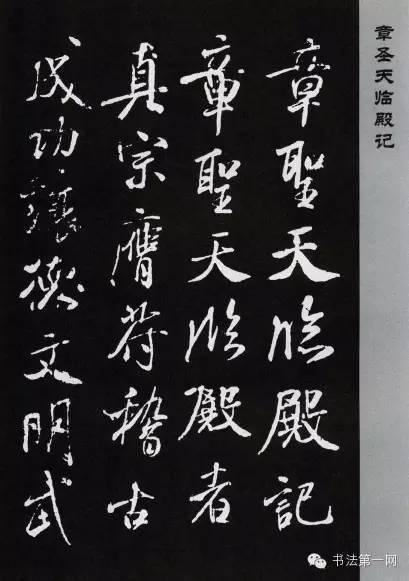 章圣天临殿记
章聖天臨殿記
章聖天臨殿者
真宗膺符稽古
成功讓德文明武
书法第一网